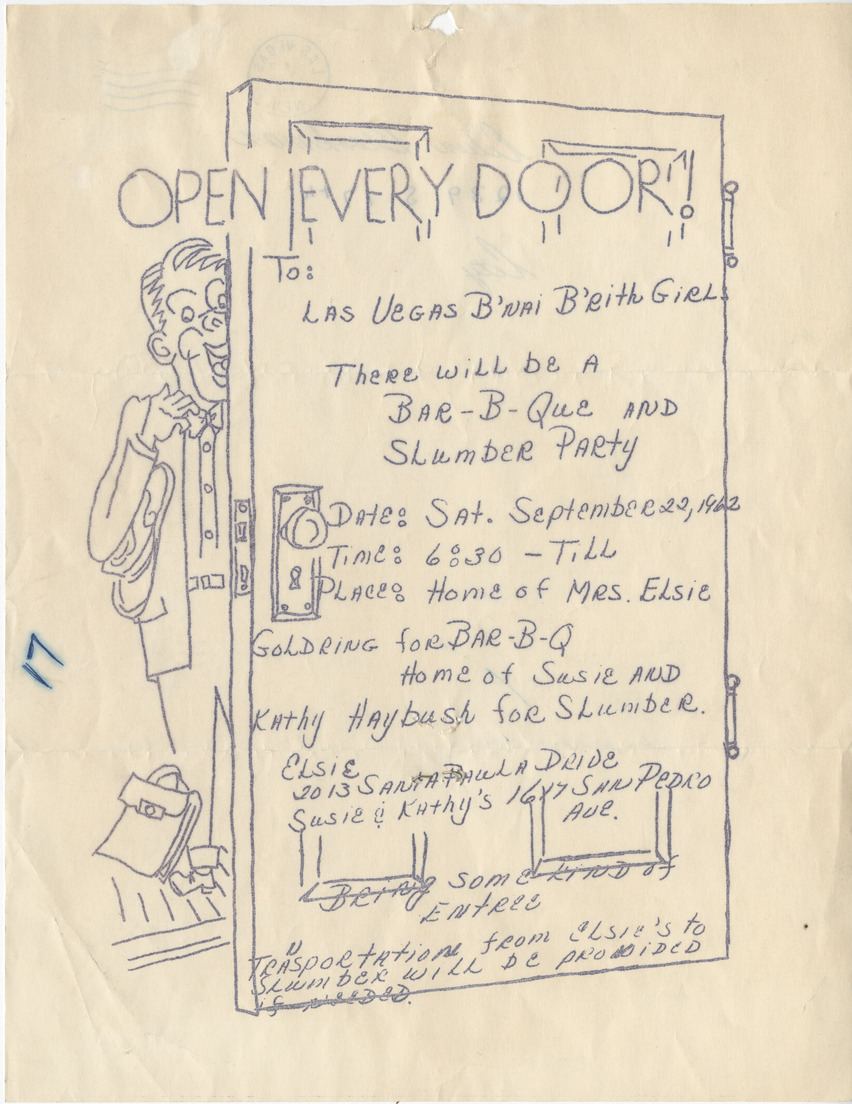 OPEN EVERY DOOR!
To:
LAS VEGAS B'NAI B'RITH GIRLS
THERE WILL BE A
BAR-B-QUE AND
SLUMBER PARTY
DATE: SAT. SEPTEMBER 22, 1962
TIME: 6:30 - TILL
PLACE: HOME OF MRS. ELSIE
GOLDRING FOR BAR-B-Q
HOME OF SUSIE AND
KATHY HAYBUSH FOR SLUMBER.
ELSIE
2013 SANTA PAULA DRIVE
SUSIE & KATHY'S 1647 SAN PEDRO
AVE.
BRING SOME KIND OF
ENTREE
N
TRASPORTATION FROM ELSIE'S TO
SLUMBER WILL BE PROVIDED
IF NEEDED.
17